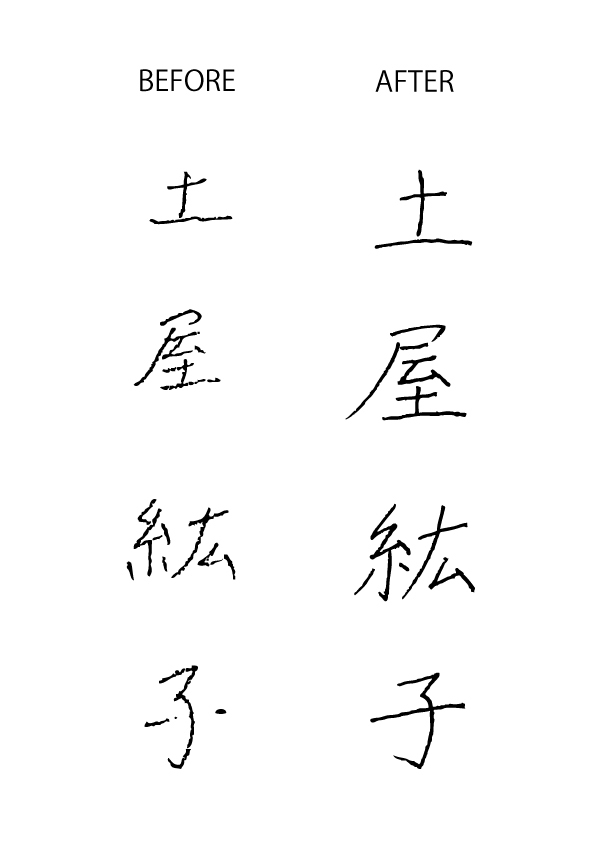 BEFORE AFTER
土 土
屋 屋
紘 紘
子 子